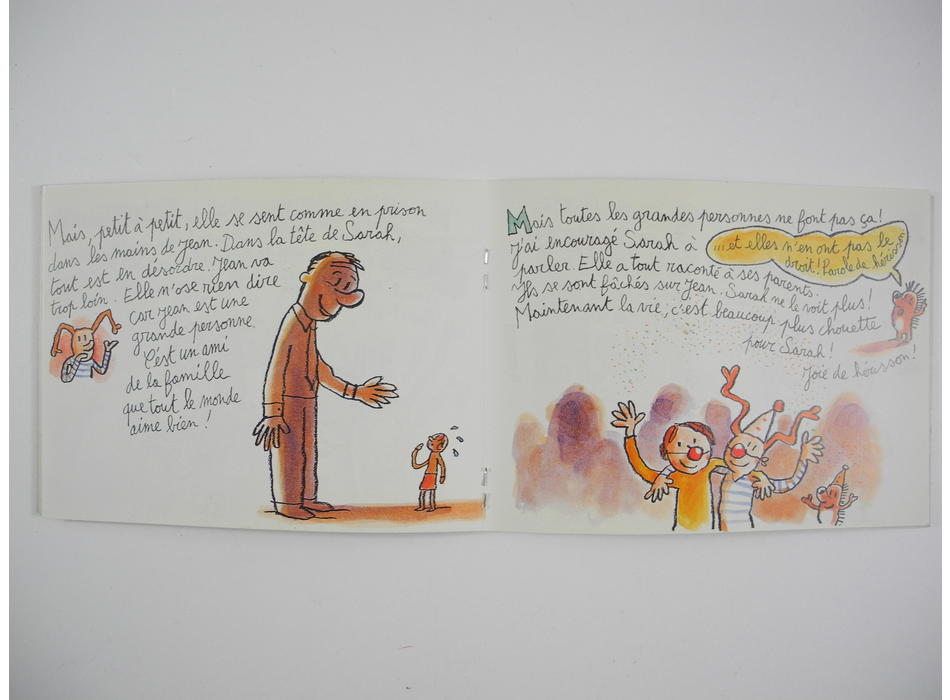 Mais, petit à petit, elle se sent comme en prison
dans les mains de Jean. Dans la tête de Sarah,
tout est en désordre. Jean va
trop loin. Elle n'ose rien dire
car Jean est une
grande personne.
C'est un ami
de la famille
que tout le monde
aime bien !
Mais toutes les grandes personnes ne font pas ça !
J'ai encouragé Sarah à
parler. Elle a tout raconté à ses parents.
Ils se sont fâchés sur Jean. Sarah ne le voit plus !
Maintenant la vie, c'est beaucoup plus chouette
pour Sarah !
Joie de hérisson !
...et elles n'en ont pas le
droit ! Parole de hérisson